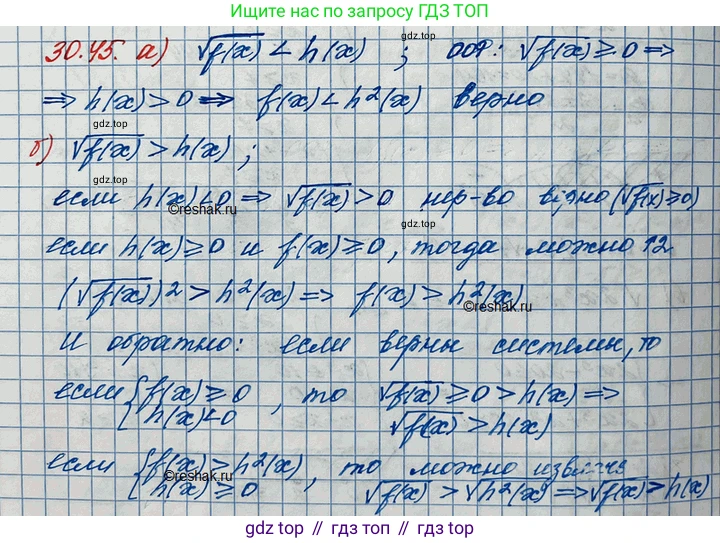 Ищите нас по запросу ГДЗ ТОП
30.45. а) √f(x) < h(x) ; ООФ: √f(x) ≥ 0 ⇒
gdz.top
⇒ h(x) > 0 ⇒ f(x) < h²(x) верно
gdz.top
б) √f(x) > h(x) ;
gdz.top
если h(x) < 0 ⇒ √f(x) > 0 нер-во вірно (√f(x) ≥ 0)
©reshak.ru
gdz.top
если h(x) ≥ 0 и f(x) ≥ 0, тогда можно ↑2
(√f(x))2 > h²(x) ⇒ f(x) > h²(x)
©reshak.ru
И обратно: если верны системы, то
если { f(x) ≥ 0 , то √f(x) ≥ 0 > h(x) ⇒
h(x) < 0 √f(x) > h(x)
если { f(x) > h²(x) , то можно извлечь
©reshak.ru
h(x) ≥ 0 √f(x) > √h²(x) ⇒ √f(x) > h(x)
gdz top // гдз топ // gdz top